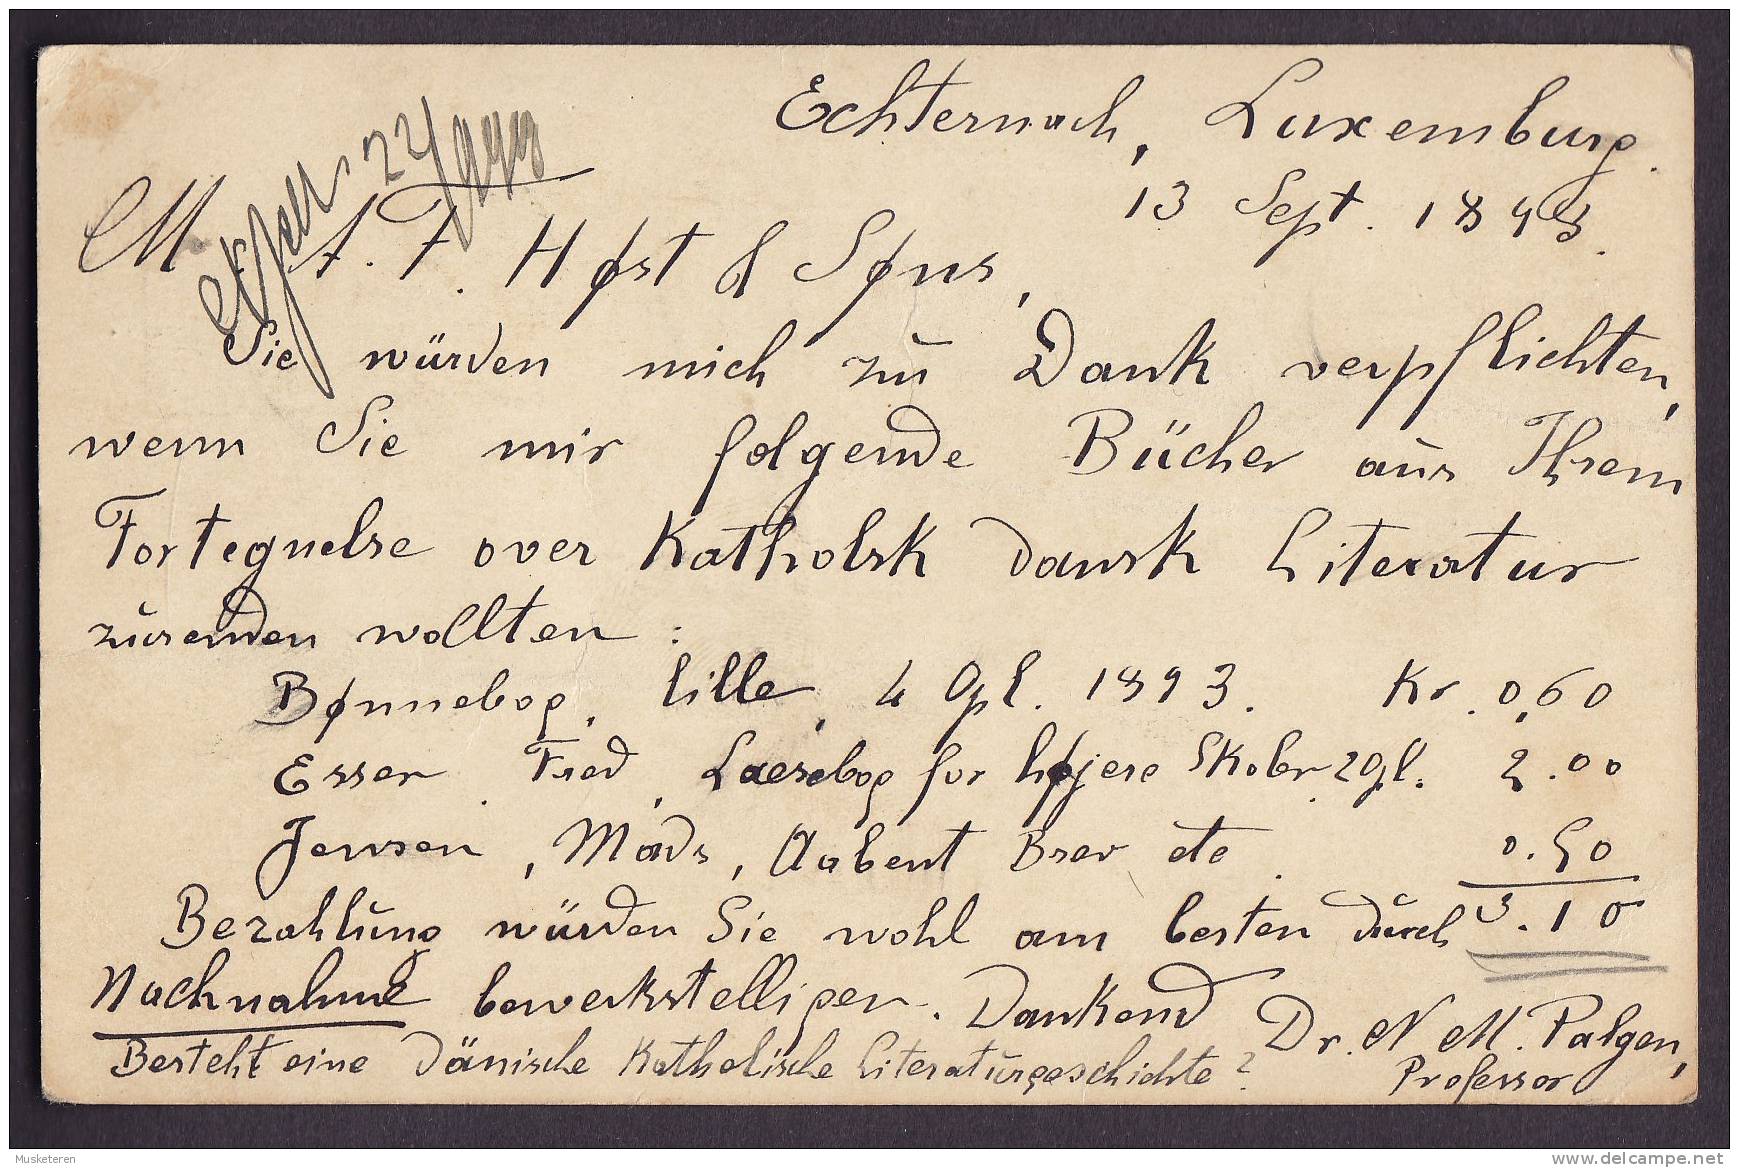 Echternach, Luxemburg.
13 Sept. 1893.
M A. F. Høst & Søns,
Sie würden mich zu Dank verpflichten,
wenn Sie mir folgende Bücher aus Ihrem
Fortegnelse over Katholsk dansk Literatur
zusenden wollten :
Bønnebog, lille, 4 Opl. 1893. Kr. 0,60
Esser. Fred, Laesebog for højere Skoler. 2 Opl. 2.00
Jensen, Mads, Aabent Brev etc. 0.50
Bezahlung würden Sie wohl am besten durch 3.10
Nachnahme bewerkstelligen. Dankend Dr. N M. Palgen,
Besteht eine dänische Katholische Literaturgeschichte? Professor
Musketeren
delcampe.net